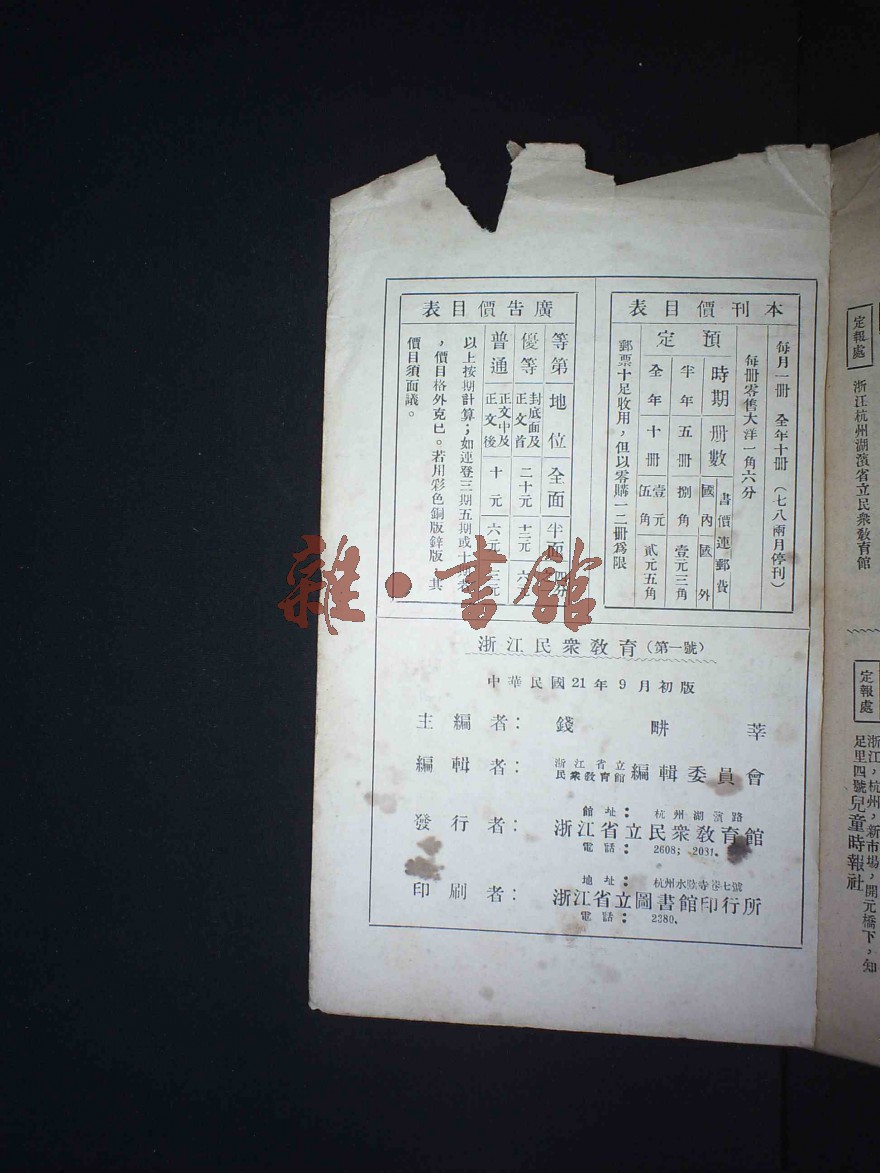 本刊價目表
每月一冊　全年十冊（七八兩月停刊）
每冊零售大洋一角六分
預定
時期　冊數　書價連郵費　國內　國外
半年　五冊　捌角　壹元三角
全年　十冊　壹元五角　貳元五角
郵票十足收用，但以零購一二冊爲限
廣告價目表
等第　地位　全面　半面
優等　封底面及正文首　二十元　十二元　六
普通　正文中及正文後　十元　六元　三元
以上按期計算；如連登三期五期或十期
，價目格外克已。若用彩色銅版鋅版，其
價目須面議。
雜·書館
浙江民衆敎育（第一號）
中華民國21年9月初版
主編者：錢畊莘
編輯者：浙江省立民衆敎育館編輯委員會
館址：杭州湖濱路
發行者：浙江省立民衆敎育館
電話：2608；2031.
地址：杭州水寺七號
印刷者：浙江省立圖書館印行所
電話：2380.
定報處
浙江杭州湖濱省立民衆敎育館
定報處
浙江，杭州，新市場，開元橋下，知
足里四號兒童時報社